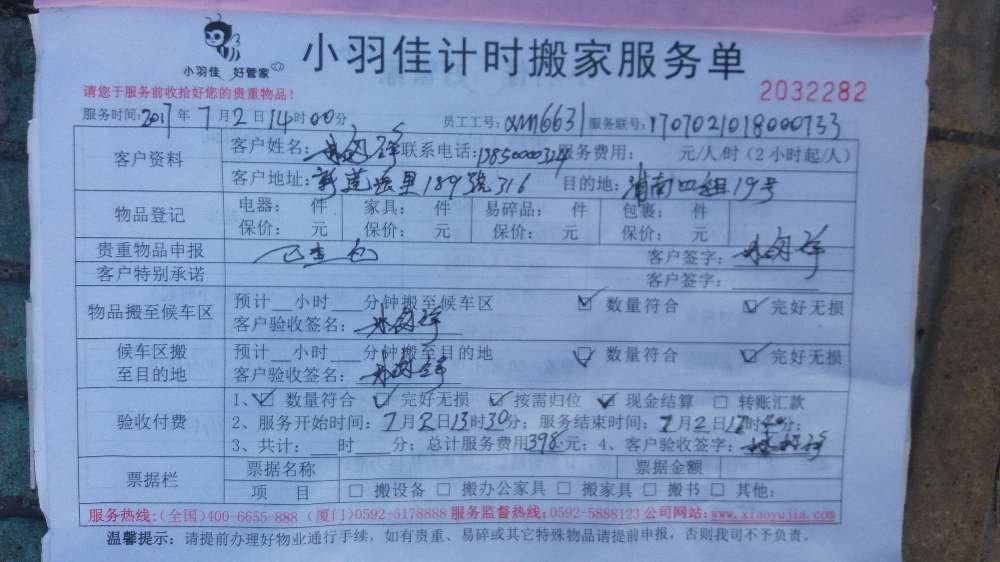 小羽佳 好管家
小羽佳计时搬家服务单
2032282
请您于服务前收拾好您的贵重物品！
服务时间：2017年7月2日14时00分 员工工号：XM16631 服务联号：1707021018000733
客户资料
客户姓名： 联系电话： 服务费用： 元/人/时（2小时起/人）
客户地址： 里189號316 目的地：浦南四组19号
物品登记
电器： 件 家具： 件 易碎品： 件 包裹： 件
保价： 元 保价： 元 保价： 元 保价： 元
贵重物品申报 已查包 客户签字：
客户特别承诺 客户签字：
物品搬至候车区
预计__小时___分钟搬至候车区 ☑ 数量符合 ☑ 完好无损
客户验收签名：
候车区搬至目的地
预计__小时___分钟搬至目的地 ☑ 数量符合 ☑ 完好无损
客户验收签名：
验收付费
1、☑ 数量符合 ☑ 完好无损 ☑ 按需归位 ☑ 现金结算 □ 转账汇款
2、服务开始时间：7月2日13时30分；服务结束时间：7月2日 时 分；
3、共计：____时____分；总计服务费用398元；4、客户验收签字：
票据栏
票据名称 票据金额
项 目 □ 搬设备 □ 搬办公家具 □ 搬家具 □ 搬书 □ 其他：
服务热线：（全国）400-6655-888 （厦门）0592-5178888 服务监督热线：0592-5888123 公司网站：www.xiaoyujia.com
温馨提示：请提前办理好物业通行手续，如有贵重、易碎或其它特殊物品请提前申报，否则我司不予负责。